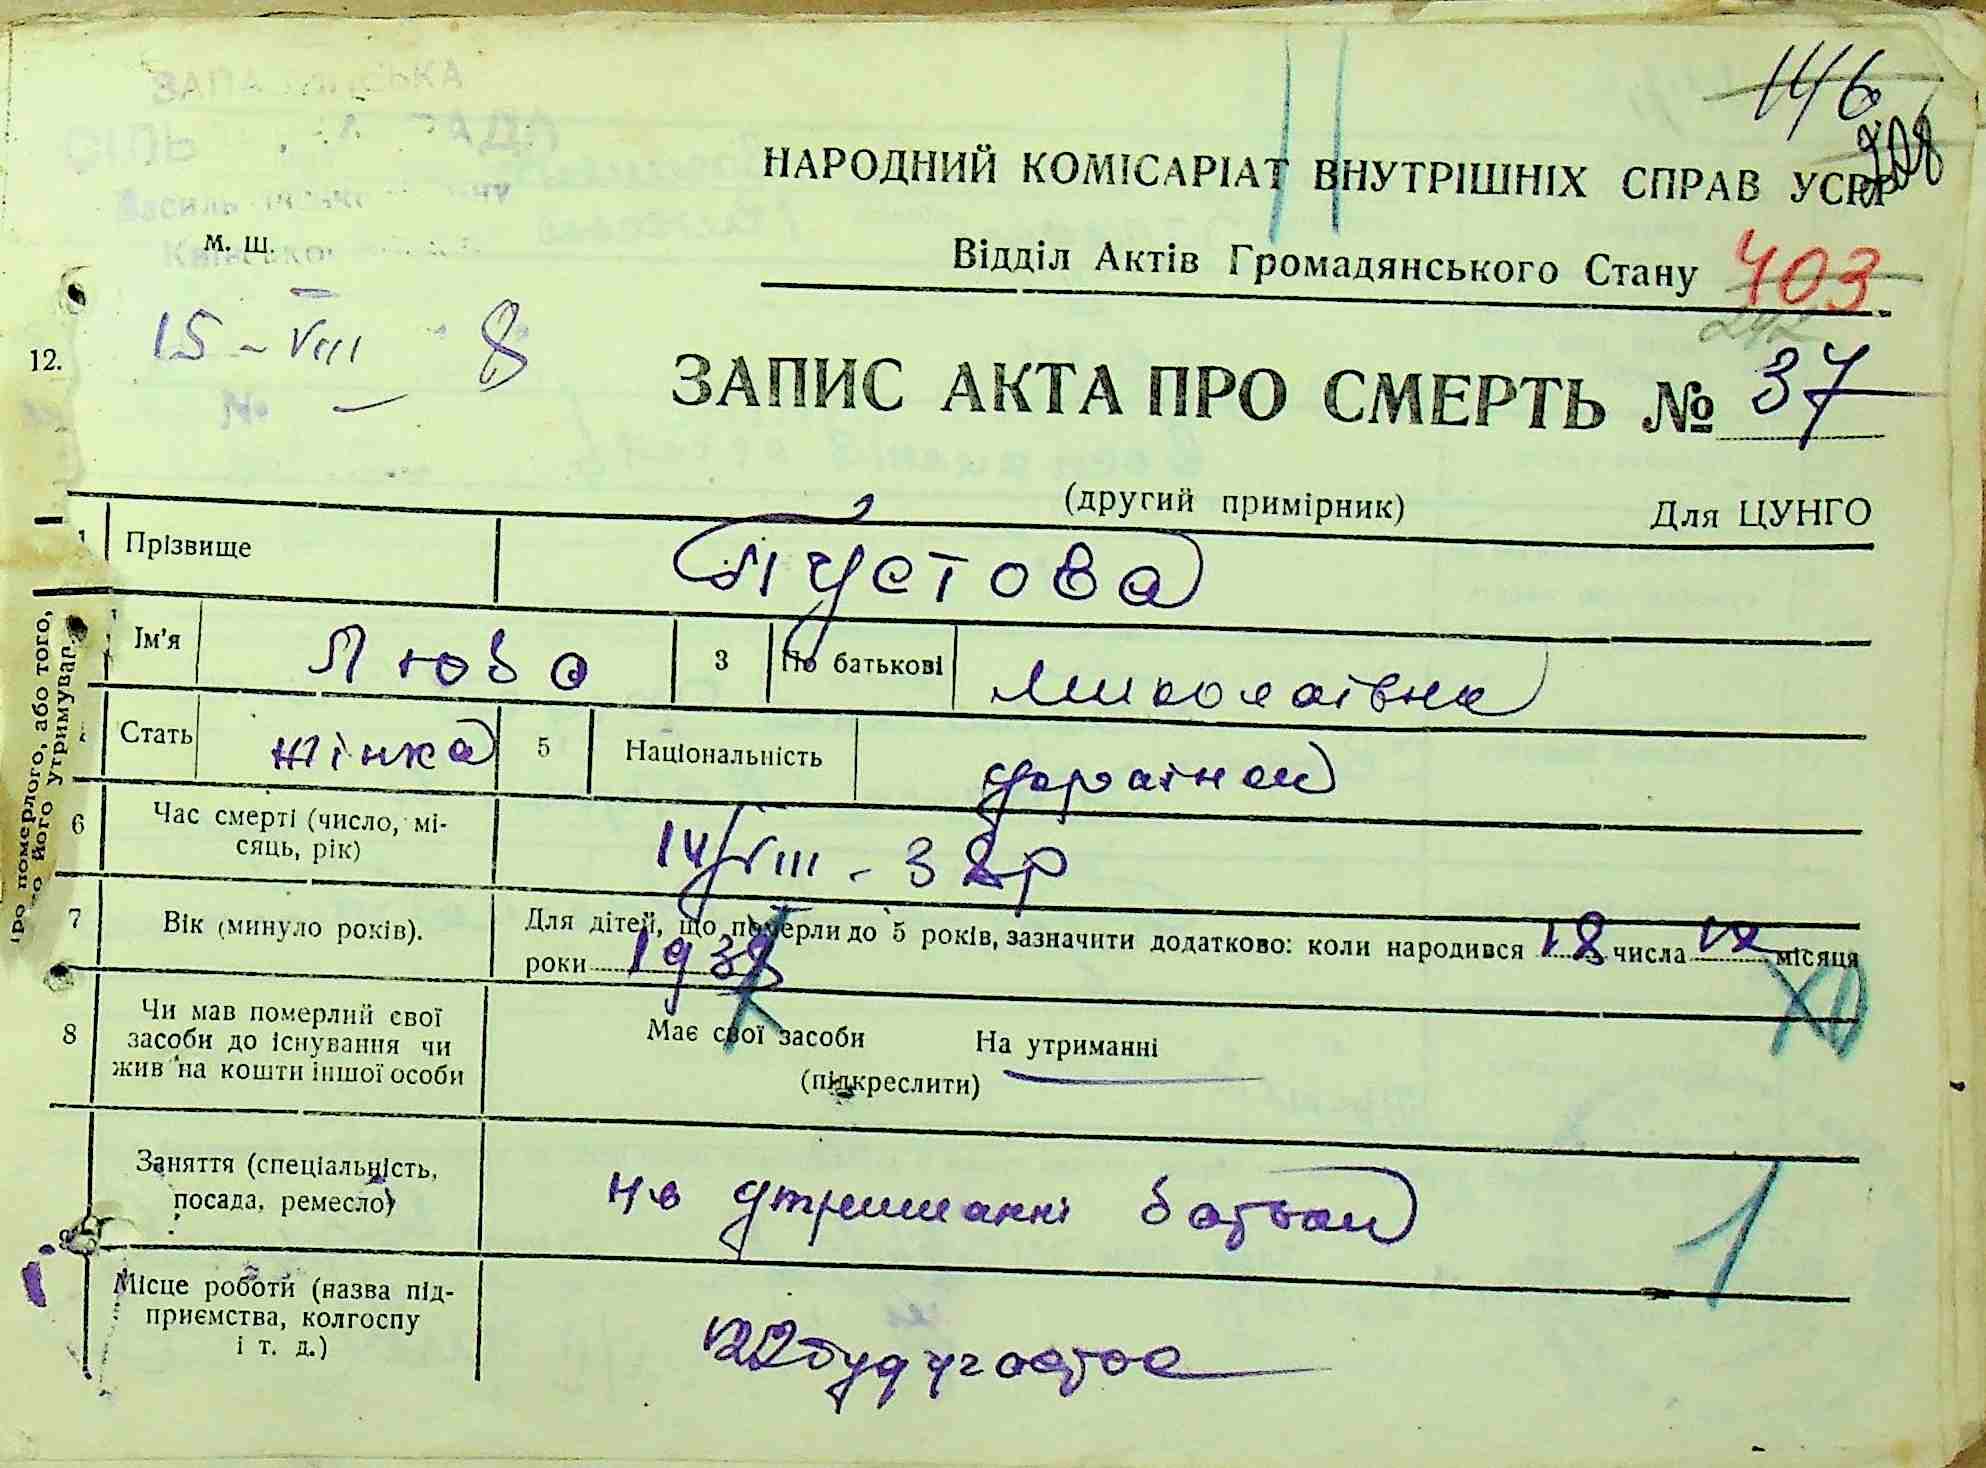 146
208
ЗАПА СЬКА
СІЛЬ РАДА
НАРОДНИЙ КОМІСАРІАТ ВНУТРІШНІХ СПРАВ УСРР
м. ш.
Відділ Актів Громадянського Стану 403
242
12.
15 - VIII 8
ЗАПИС АКТА ПРО СМЕРТЬ № 37
№
(другий примірник) Для ЦУНГО
1 Прізвище Пустова
Ім'я Люба 3 По батькові Миколаївна
Стать жінка 5 Національність україн
6 Час смерті (число, мі-
сяць, рік) 14/VIII - 38р
7 Вік (минуло років). Для дітей, що померли до 5 років, зазначити додатково: коли народився 18 числа місяця
роки 1938
XII
8 Чи мав померлий свої
засоби до існування чи
жив на кошти іншої особи
Має свої засоби На утриманні
(підкреслити)
Заняття (спеціальність,
посада, ремесло) на утриманні батьки
1
Місце роботи (назва під-
приємства, колгоспу
і т. д.) 22 буд участок
ро померлого, або того,
його утримував